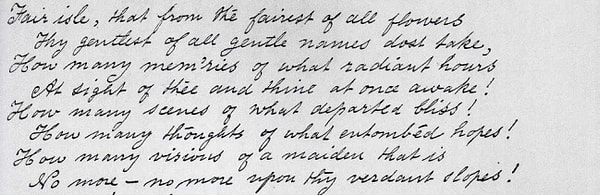 Fair isle, that from the fairest of all flowers
Thy gentlest of all gentle names dost take,
How many mem'ries of what radiant hours
At sight of thee and thine at once awake!
How many scenes of what departed bliss!
How many thoughts of what entombéd hopes!
How many visions of a maiden that is
No more – no more upon thy verdant slopes!